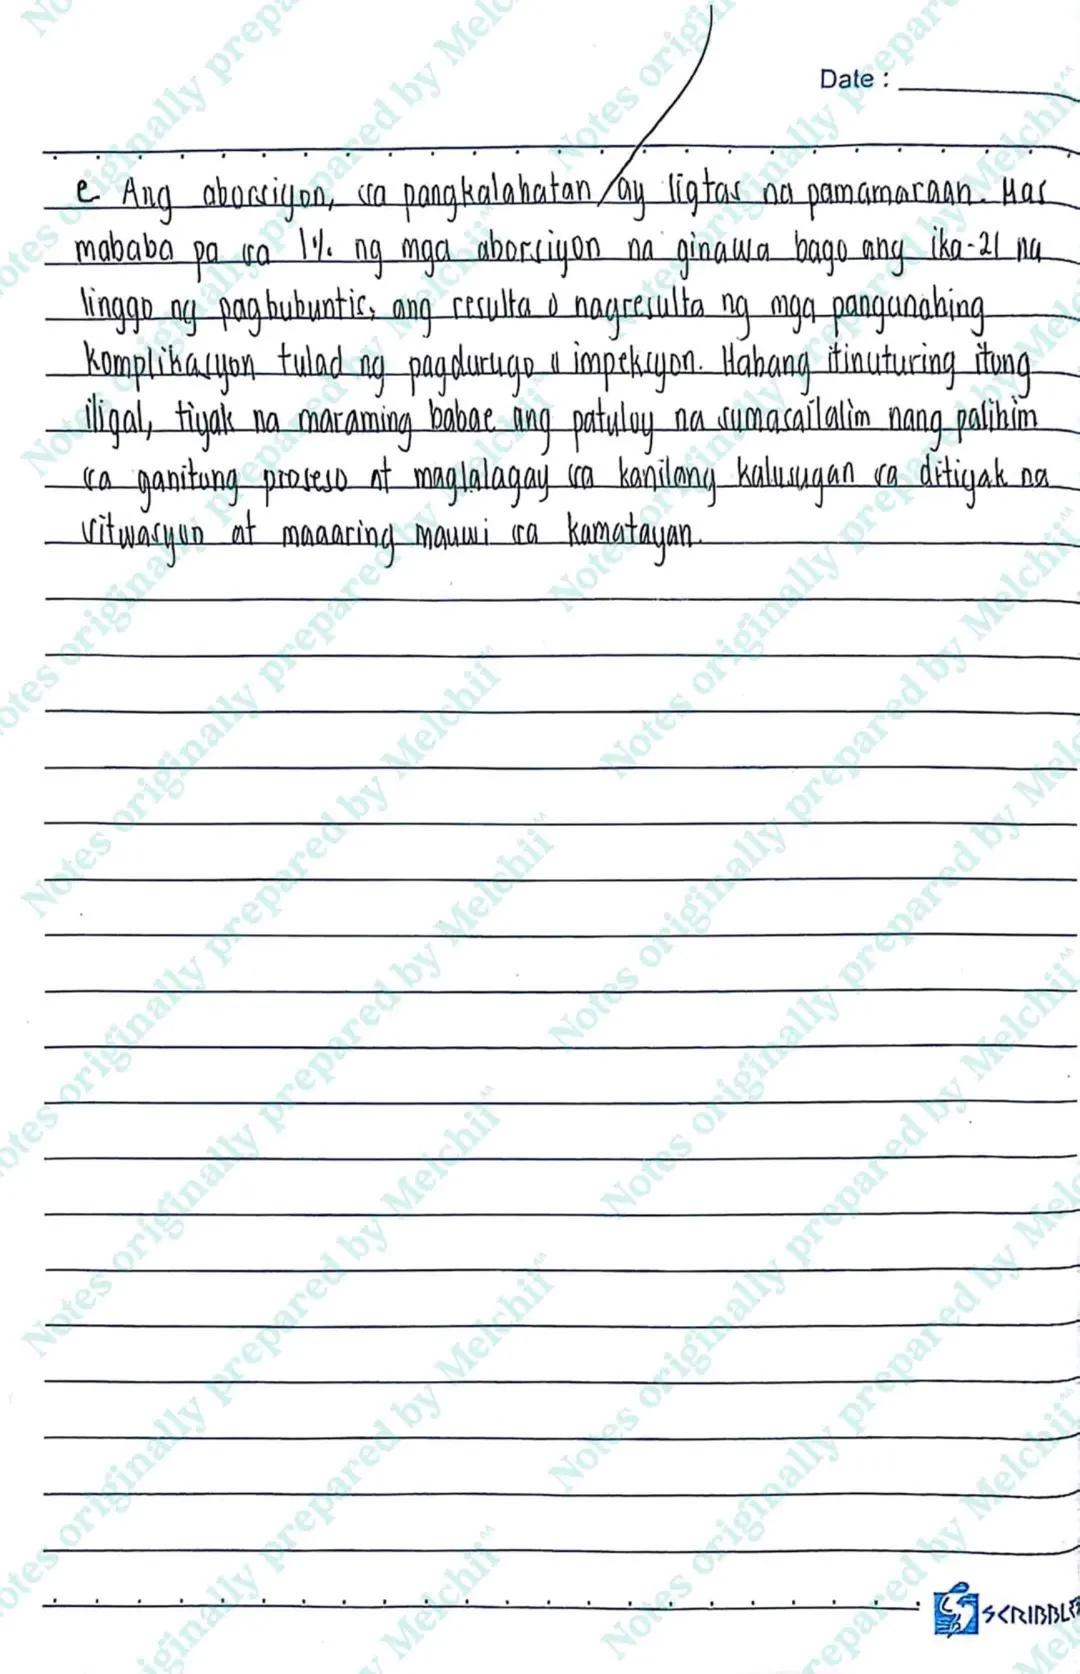 Date :
e Ang aborsiyon, sa pangkalahatan ay ligtas na pamamaraan. Mas
mababa pa sa 1% ng mga aborsiyon na ginawa bago ang ika-21 na
linggo ng pagbubuntis, ang resulta o nagresulta ng mga pangunahing
komplikasyon tulad ng pagdurugo o impeksyon. Habang itinuturing itong
iligal, tiyak na maraming babae ang patuloy na sumasailalim nang palihim
sa ganitong proseso at maglalagay sa kanilang kalusugan sa ditiyak na
sitwasyon at maaaring mauwi sa kamatayan.
Notes originally prepared by Melchii^^
SCRIBBLE